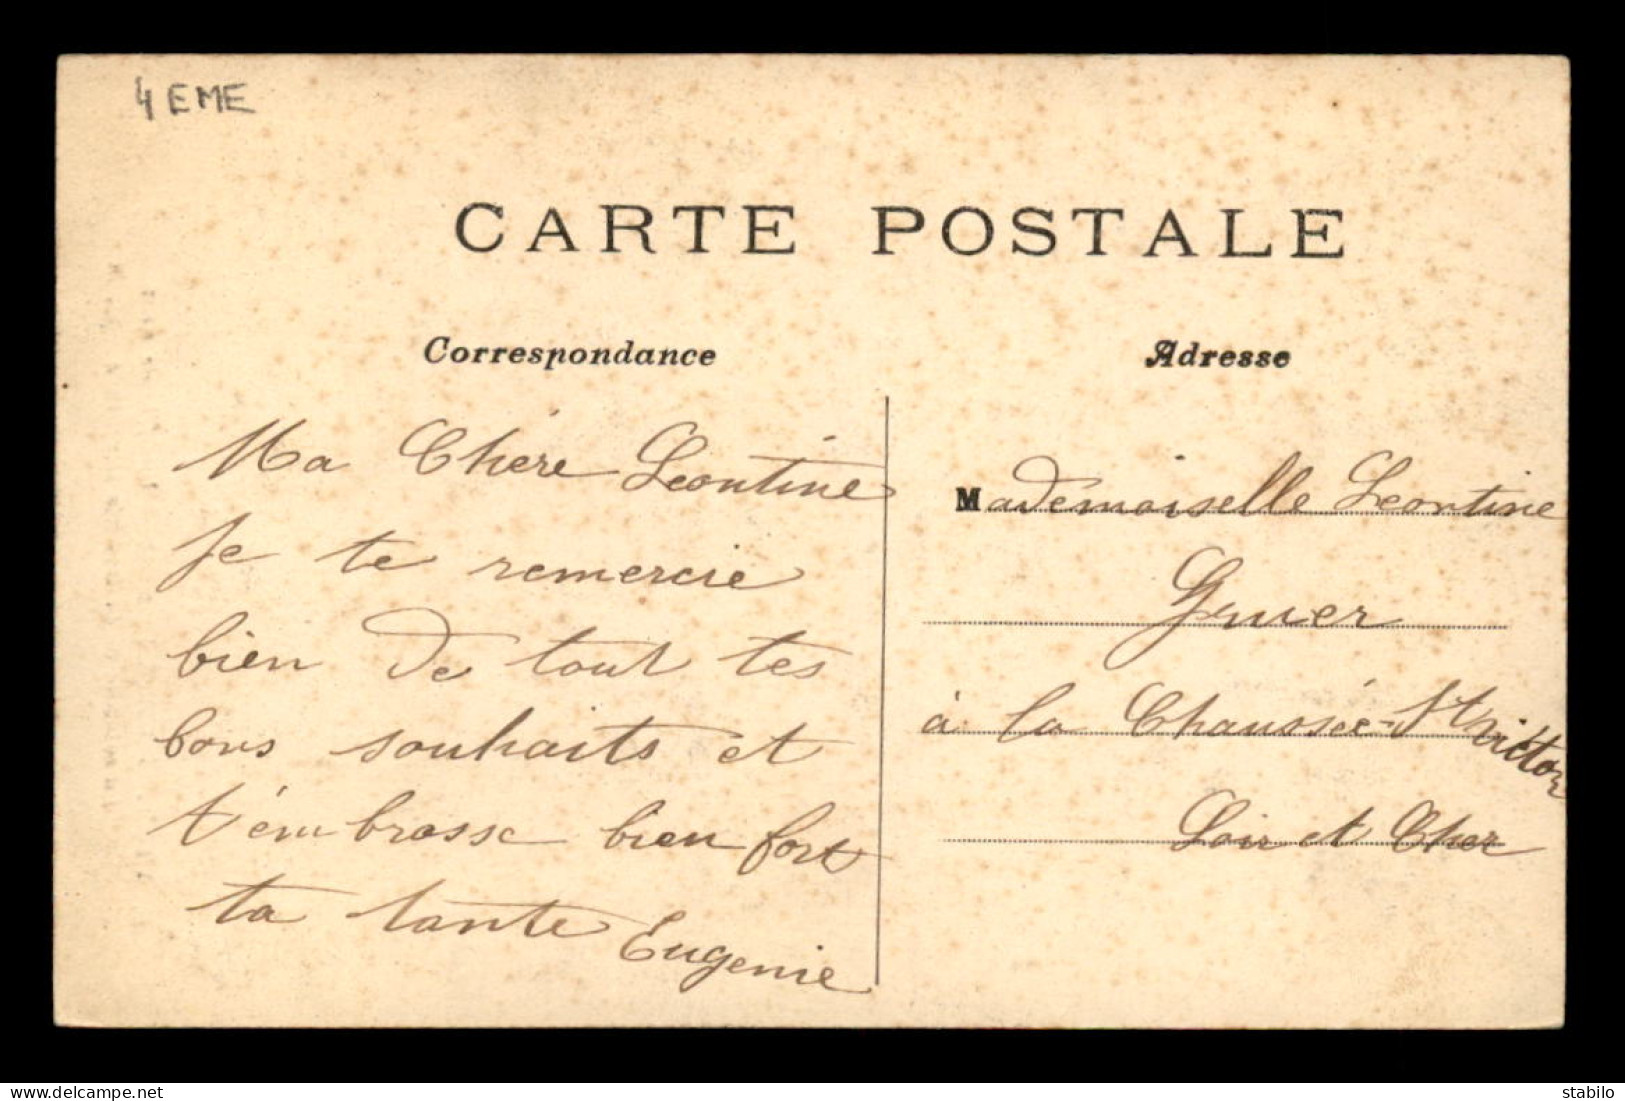 4 EME
CARTE POSTALE
Correspondance
Ma Chère Leontine
Je te remercie
bien de tout tes
bons souhaits et
t'embrasse bien fort
ta tante Eugenie
Adresse
Mademoiselle Leontine
Gruer
à la Chaussée-St Victor
Loir et Cher
www.delcampe.net
stabilo